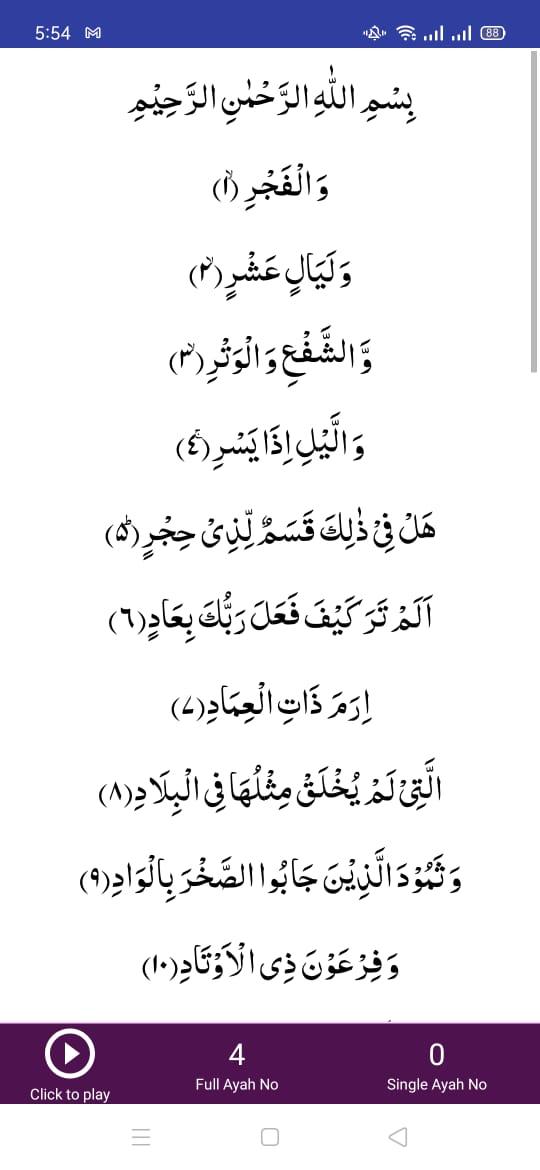 5:54
88
بِسْمِ اللّٰهِ الرَّحْمٰنِ الرَّحِيْمِ
وَالْفَجْرِ (۱ۙ)
وَلَيَالٍ عَشْرٍ (۲ۙ)
وَّالشَّفْعِ وَالْوَتْرِ (۳ۙ)
وَالَّيْلِ اِذَا يَسْرِ (٤ۚ)
هَلْ فِيْ ذٰلِكَ قَسَمٌ لِّذِيْ حِجْرٍ (۵ؕ)
اَلَمْ تَرَ كَيْفَ فَعَلَ رَبُّكَ بِعَادٍ (٦)
اِرَمَ ذَاتِ الْعِمَادِ (۷)
الَّتِيْ لَمْ يُخْلَقْ مِثْلُهَا فِي الْبِلَادِ (۸)
وَثَمُوْدَ الَّذِيْنَ جَابُوا الصَّخْرَ بِالْوَادِ (۹)
وَفِرْعَوْنَ ذِى الْاَوْتَادِ (۱۰)
4 0
Click to play Full Ayah No Single Ayah No